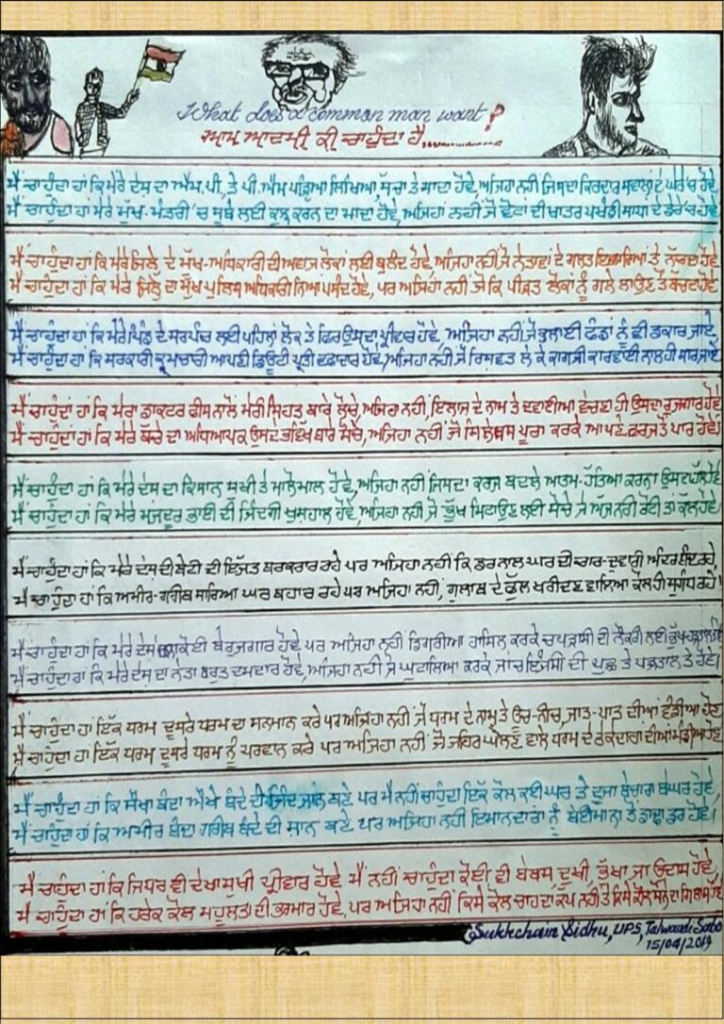 What does a common man want?
ਆਮ ਆਦਮੀ ਕੀ ਚਾਹੁੰਦਾ ਹੈ..............
ਮੈਂ ਚਾਹੁੰਦਾ ਹਾਂ ਕਿ ਮੇਰੇ ਦੇਸ਼ ਦਾ ਐਮ.ਪੀ. ਤੇ ਪੀ.ਐਮ ਪੜ੍ਹਿਆ ਲਿਖਿਆ, ਸੱਚਾ ਤੇ ਸਾਦਾ ਹੋਵੇ, ਅਜਿਹਾ ਨਹੀਂ ਜਿਸਦਾ ਕਿਰਦਾਰ ਸਵਾਲਾਂ ਦੇ ਘੇਰੇ 'ਚ ਹੋਵੇ
ਮੈਂ ਚਾਹੁੰਦਾ ਹਾਂ ਮੇਰੇ ਮੁੱਖ-ਮੰਤਰੀ 'ਚ ਸੂਬੇ ਲਈ ਕੁਝ ਕਰਨ ਦਾ ਮਾਦਾ ਹੋਵੇ, ਅਜਿਹਾਂ ਨਹੀਂ ਜੋ ਵੋਟਾਂ ਦੀ ਖਾਤਰ ਪਖੰਡੀ ਸਾਧਾਂ ਦੇ ਡੇਰੇ 'ਚ ਹੋਵੇ
ਮੈਂ ਚਾਹੁੰਦਾ ਹਾਂ ਕਿ ਮੇਰੇ ਜਿਲੇ ਦੇ ਮੁੱਖ-ਅਧਿਕਾਰੀ ਦੀ ਅਵਾਜ਼ ਲੋਕਾਂ ਲਈ ਬੁਲੰਦ ਹੋਵੇ, ਅਜਿਹਾ ਨਹੀਂ ਜੋ ਨੇਤਾਵਾਂ ਦੇ ਗਲਤ ਇਸ਼ਾਰਿਆਂ ਤੇ ਨੱਚਦਾ ਹੋਵੇ
ਮੈਂ ਚਾਹੁੰਦਾ ਹਾਂ ਕਿ ਮੇਰੇ ਜਿਲ੍ਹੇ ਦਾ ਮੁੱਖ ਪੁਲਿਸ ਅਧਿਕਾਰੀ ਨਿਆ ਪਸੰਦ ਹੋਵੇ, ਪਰ ਅਜਿਹਾ ਨਹੀਂ ਜੋ ਕਿ ਪੀੜਤ ਲੋਕਾਂ ਨੂੰ ਗਲੇ ਲਾਉਣ ਤੋਂ ਬੱਚਦਾ ਹੋਵੇ
ਮੈਂ ਚਾਹੁੰਦਾ ਹਾਂ ਕਿ ਮੇਰੇ ਪਿੰਡ ਦੇ ਸਰਪੰਚ ਲਈ ਪਹਿਲਾਂ ਲੋਕ ਤੇ ਫਿਰ ਉਸਦਾ ਪ੍ਰੀਵਾਰ ਹੋਵੇ, ਅਜਿਹਾ ਨਹੀਂ ਜੋ ਭਲਾਈ ਫੰਡਾਂ ਨੂੰ ਵੀ ਡਕਾਰ ਜਾਏ
ਮੈਂ ਚਾਹੁੰਦਾ ਹਾਂ ਕਿ ਸਰਕਾਰੀ ਕ੍ਰਮਚਾਰੀ ਆਪਣੀ ਡਿਊਟੀ ਪ੍ਰਤੀ ਵਫਾਦਾਰ ਹੋਵੇ, ਅਜਿਹਾ ਨਹੀਂ ਜੋ ਰਿਸ਼ਵਤ ਲੈ ਕੇ ਕਾਗਜੀ ਕਾਰਵਾਈ ਨਾਲ ਹੀ ਸਾਰ ਜਾਏ
ਮੈਂ ਚਾਹੁੰਦਾ ਹਾਂ ਕਿ ਮੇਰਾ ਡਾਕਟਰ ਫੀਸ ਨਾਲੋਂ ਮੇਰੀ ਸਿਹਤ ਬਾਰੇ ਲੋਚੇ, ਅਜਿਹਾ ਨਹੀਂ, ਇਲਾਜ ਦੇ ਨਾਮ ਤੇ ਦਵਾਈਆਂ ਵੇਚਣਾ ਹੀ ਉਸਦਾ ਰੁਜ਼ਗਾਰ ਹੋਵੇ
ਮੈਂ ਚਾਹੁੰਦਾ ਹਾਂ ਕਿ ਮੇਰੇ ਬੱਚੇ ਦਾ ਅਧਿਆਪਕ ਉਸਦੇ ਭਵਿੱਖ ਬਾਰੇ ਸੋਚੇ, ਅਜਿਹਾ ਨਹੀਂ ਜੋ ਸਿਲੇਬਸ ਪੂਰਾ ਕਰਕੇ ਆਪਣੇ ਫਰਜ ਤੋਂ ਪਾਰ ਹੋਵੇ।
ਮੈਂ ਚਾਹੁੰਦਾ ਹਾਂ ਕਿ ਮੇਰੇ ਦੇਸ਼ ਦਾ ਕਿਸਾਨ ਸੁਖੀ ਤੇ ਮਾਲੋਮਾਲ ਹੋਵੇ, ਅਜਿਹਾ ਨਹੀਂ ਜਿਸਦਾ ਕਰਜ਼ ਬਦਲੇ ਆਤਮ-ਹੱਤਿਆ ਕਰਨਾ ਉਸਦਾ ਹੱਲ ਹੋਵੇ
ਮੈਂ ਚਾਹੁੰਦਾ ਹਾਂ ਕਿ ਮੇਰੇ ਮਜਦੂਰ ਭਾਈ ਦੀ ਜਿੰਦਗੀ ਖੁਸ਼ਹਾਲ ਹੋਵੇ, ਅਜਿਹਾ ਨਹੀਂ ਜੋ ਭੁੱਖ ਮਿਟਾਉਣ ਲਈ ਸੋਚੇ ਜੇ ਅੱਜ ਨਹੀਂ ਰੋਟੀ ਤਾਂ ਕੱਲ ਹੋਵੇ
ਮੈਂ ਚਾਹੁੰਦਾ ਹਾਂ ਕਿ ਮੇਰੇ ਦੇਸ਼ ਦੀ ਬੇਟੀ ਦੀ ਇੱਜਤ ਬਰਕਰਾਰ ਰਹੇ ਪਰ ਅਜਿਹਾ ਨਹੀਂ ਕਿ ਡਰ ਨਾਲ ਘਰ ਦੀ ਚਾਰ-ਦਵਾਰੀ ਅੰਦਰ ਬੰਦ ਰਹੇ
ਮੈਂ ਚਾਹੁੰਦਾ ਹਾਂ ਕਿ ਅਮੀਰ-ਗਰੀਬ ਸਾਰਿਆ ਘਰ ਬਹਾਰ ਰਹੇ ਪਰ ਅਜਿਹਾ ਨਹੀਂ, ਗੁਲਾਬ ਦੇ ਫੁੱਲ ਖਰੀਦਣ ਵਾਲਿਆ ਕੋਲ ਹੀ ਸੁਗੰਧ ਰਹੇ।
ਮੈਂ ਚਾਹੁੰਦਾ ਹਾਂ ਕਿ ਮੇਰੇ ਦੇਸ਼ ਕੋਈ ਬੇਰੁਜਗਾਰ ਹੋਵੇ ਪਰ ਅਜਿਹਾ ਨਹੀਂ ਡਿਗਰੀਆ ਹਾਸਿਲ ਕਰਕੇ ਚਪੜਾਸੀ ਦੀ ਨੌਕਰੀ ਲਈ
ਮੈਂ ਚਾਹੁੰਦਾ ਹਾਂ ਕਿ ਮੇਰੇ ਦੇਸ਼ ਦਾ ਨੇਤਾ ਬਹੁਤ ਦਮਦਾਰ ਹੋਵੇ, ਅਜਿਹਾ ਨਹੀਂ ਜੋ ਘੁਟਾਲਿਆ ਕਰਕੇ ਜਾਂਚ ਏਜੰਸੀ ਦੀ ਪੁਛ ਤੇ ਪੜਤਾਲ ਤੇ ਹੋਵੇ।
ਮੈਂ ਚਾਹੁੰਦਾ ਹਾਂ ਇੱਕ ਧਰਮ ਦੂਸਰੇ ਧਰਮ ਦਾ ਸਨਮਾਨ ਕਰੇ ਪਰ ਅਜਿਹਾ ਨਹੀਂ ਜੋ ਧਰਮ ਦੇ ਨਾਮ ਤੇ ਊਚ-ਨੀਚ, ਜਾਤ-ਪਾਤ ਦੀਆਂ ਵੰਡੀਆ ਹੋਣ
ਮੈਂ ਚਾਹੁੰਦਾ ਹਾਂ ਇੱਕ ਧਰਮ ਦੂਸਰੇ ਧਰਮ ਨੂੰ ਪਰਵਾਨ ਕਰੇ ਪਰ ਅਜਿਹਾ ਨਹੀਂ ਜੋ ਜ਼ਹਿਰ ਘੋਲਣ ਵਾਲੇ ਧਰਮ ਦੇ ਠੇਕੇਦਾਰਾਂ ਦੀਆਂ ਮੰਡੀਆ ਹੋਣ
ਮੈਂ ਚਾਹੁੰਦਾ ਹਾਂ ਕਿ ਸੌਖਾ ਬੰਦਾ ਔਖੇ ਬੰਦੇ ਦੀ ਜਿੰਦ ਜਾਨ ਬਣੇ ਪਰ ਮੈਂ ਨਹੀਂ ਚਾਹੁੰਦਾ ਇੱਕ ਕੋਲ ਕਈ ਘਰ ਤੇ ਦੂਜਾ ਬੇਚਾਰਾ ਬੇਘਰ ਹੋਵੇ,
ਮੈਂ ਚਾਹੁੰਦਾ ਹਾਂ ਕਿ ਅਮੀਰ ਬੰਦਾ ਗਰੀਬ ਬੰਦੇ ਦੀ ਸ਼ਾਨ ਬਣੇ ਪਰ ਅਜਿਹਾ ਨਹੀਂ ਇਮਾਨਦਾਰਾਂ ਨੂੰ ਬੇਈਮਾਨਾ ਤੋਂ ਡਾਢਾ ਡਰ ਹੋਵੇ।
ਮੈਂ ਚਾਹੁੰਦਾ ਹਾਂ ਕਿ ਜਿਧਰ ਵੀ ਦੇਖਾ ਸੁਖੀ ਪ੍ਰੀਵਾਰ ਹੋਵੇ ਮੈਂ ਨਹੀਂ ਚਾਹੁੰਦਾ ਕੋਈ ਵੀ ਬੇਬਸ, ਦੁਖੀ, ਭੁੱਖਾ ਜਾਂ ਉਦਾਸ ਹੋਵੇ,
ਮੈਂ ਚਾਹੁੰਦਾ ਹਾਂ ਕਿ ਹਰੇਕ ਕੋਲ ਸਹੂਲਤਾਂ ਦੀ ਭਰਮਾਰ ਹੋਵੇ, ਪਰ ਅਜਿਹਾ ਨਹੀਂ ਕਿਸੇ ਕੋਲ ਚਾਹ ਦਾ ਕੱਪ ਨਹੀਂ ਤੇ ਕਿਸੇ ਕੋਲ
Sukhchain Sidhu, UPS, Talwandi Sabo
15/04/2019